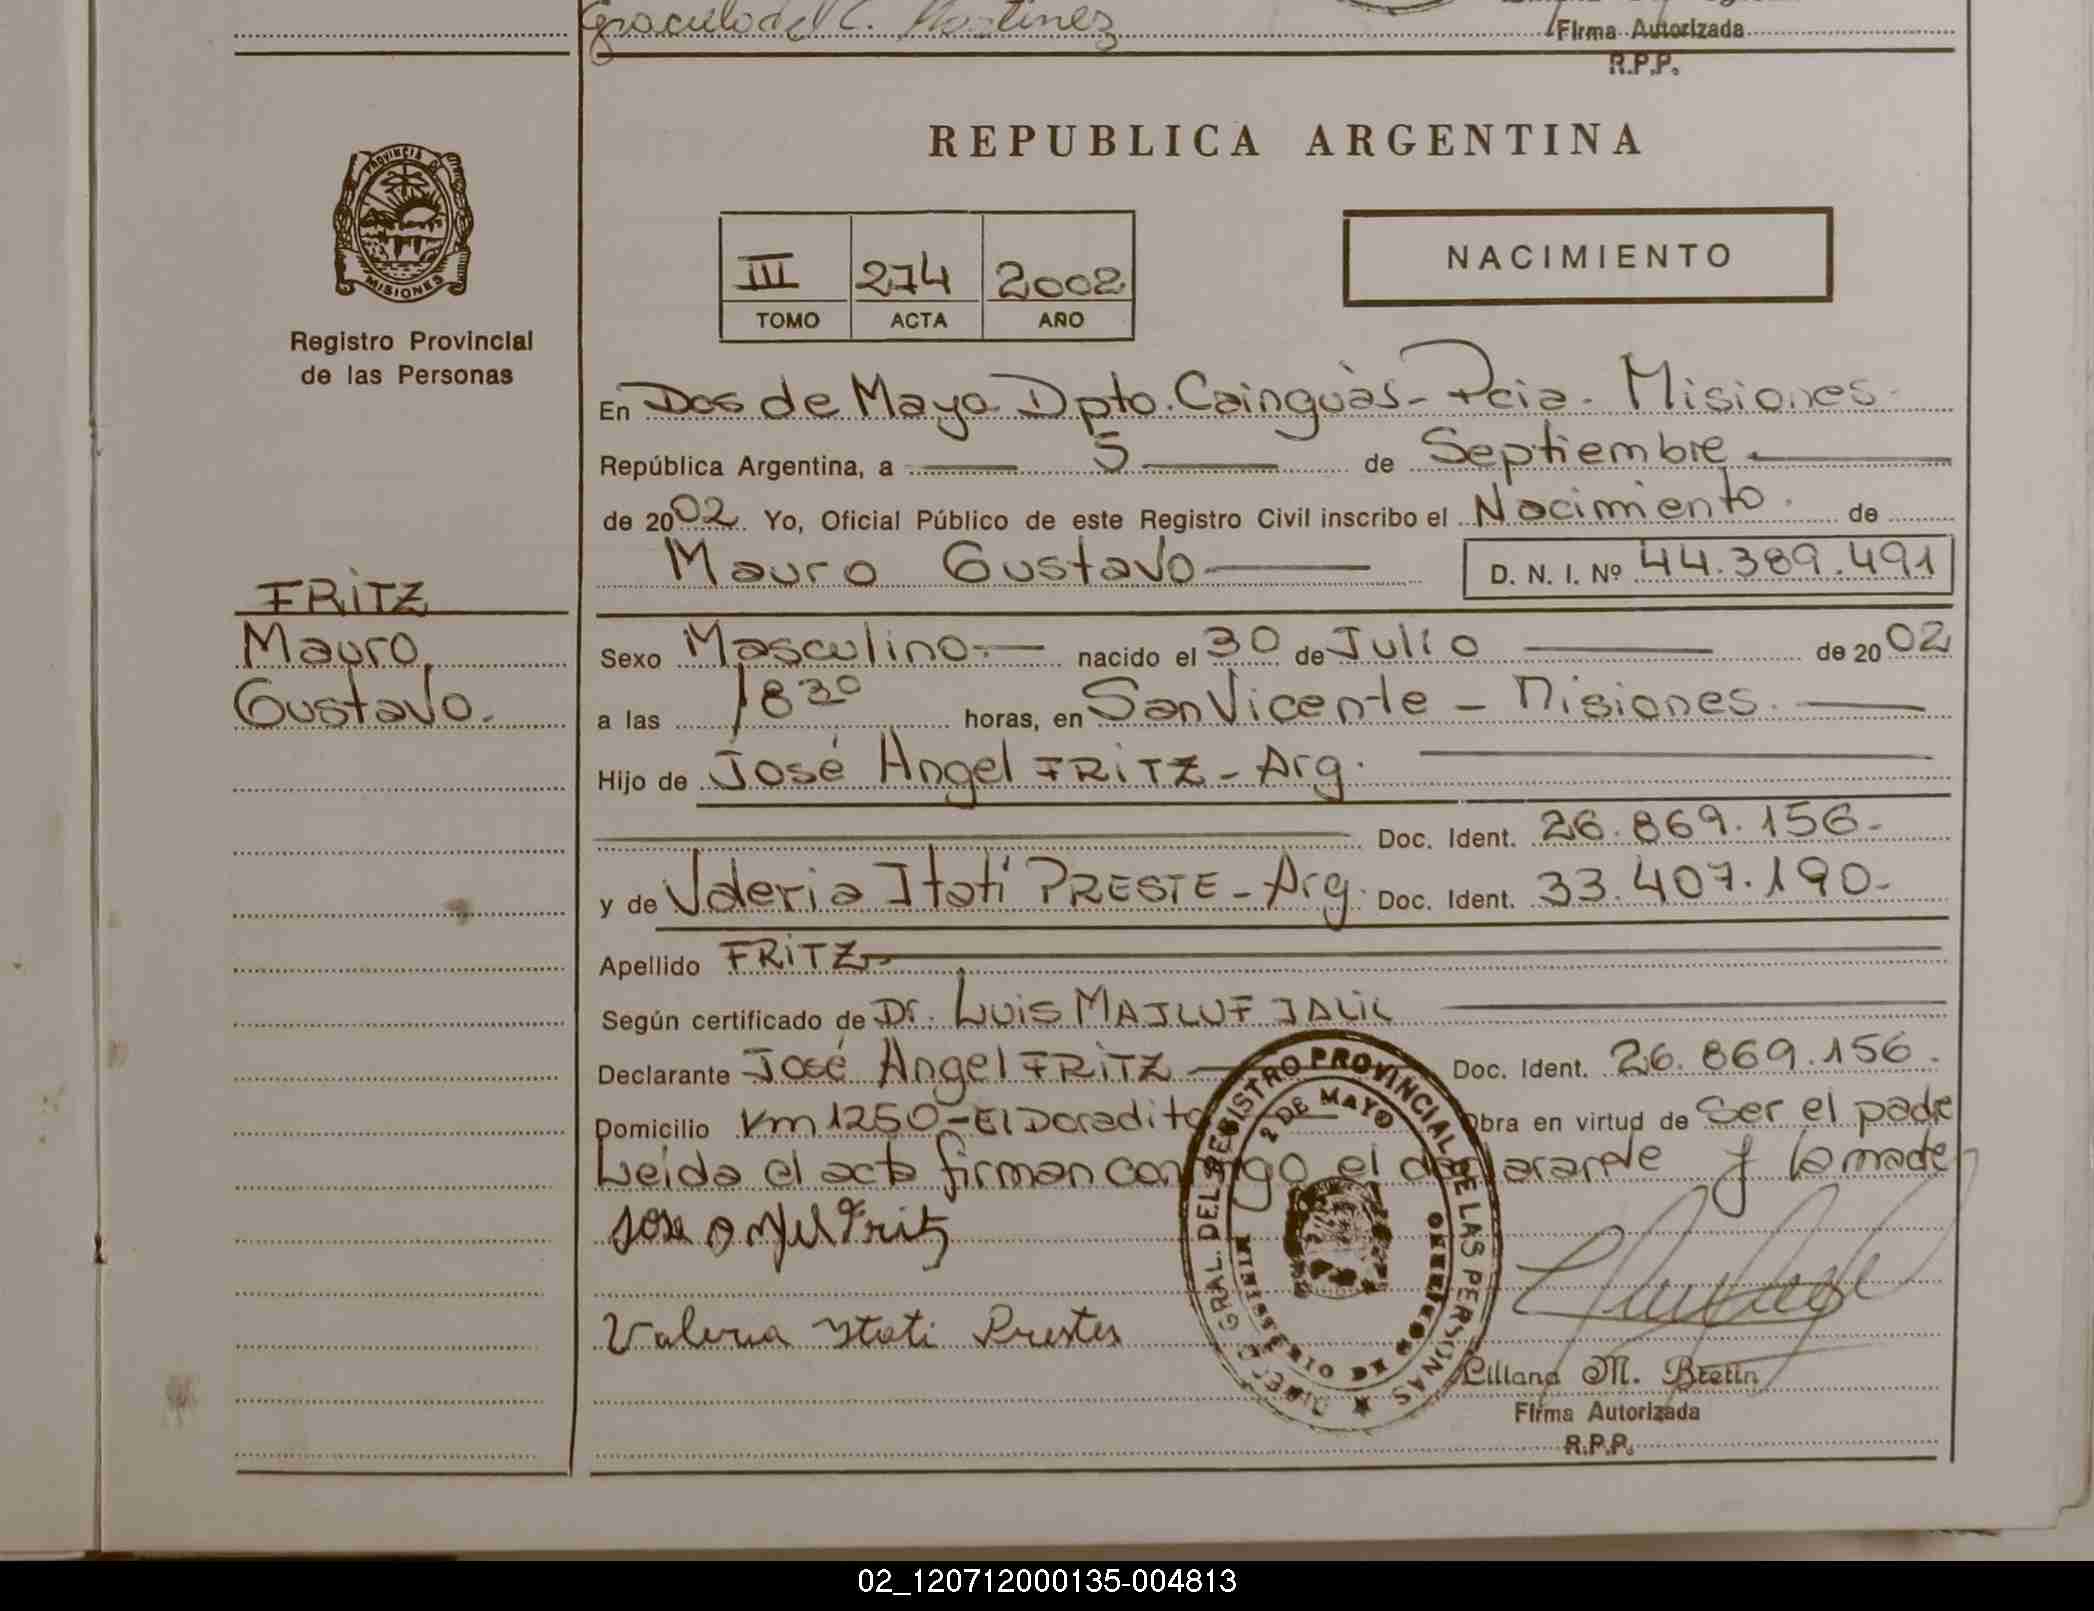 Firma Autorizada
R.P.P.
PROVINCIA DE
MISIONES
Registro Provincial
de las Personas
REPUBLICA ARGENTINA
III 274 2002
TOMO ACTA AÑO
NACIMIENTO
En Dos de Mayo Dpto. Cainguàs - Pcia. Misiones
República Argentina, a 5 de Septiembre
de 2002. Yo, Oficial Público de este Registro Civil inscribo el Nacimiento de
Mauro Gustavo D. N. I. Nº 44.389.491
FRITZ
Mauro
Gustavo.
Sexo Masculino nacido el 30 de Julio de 2002
a las 1830 horas, en San Vicente - Misiones.
Hijo de José Angel FRITZ - Arg.
Doc. Ident. 26.869.156.-
y de Valeria Itatí PRESTE - Arg. Doc. Ident. 33.407.190.-
Apellido FRITZ
Según certificado de Dr. Luis MAJLUF JALIL
Declarante José Angel FRITZ Doc. Ident. 26.869.156.
Domicilio Km 1250 - El Doradito Obra en virtud de Ser el padre
Leida el acta firman conmigo el declarante y la madre
Jose Angel Fritz
Valeria Itati Prestes
DIREC. GRAL. DEL REGISTRO PROVINCIAL DE LAS PERSONAS
2 DE MAYO
Liliana M. Bretin
Firma Autorizada
R.P.P.
02_120712000135-004813